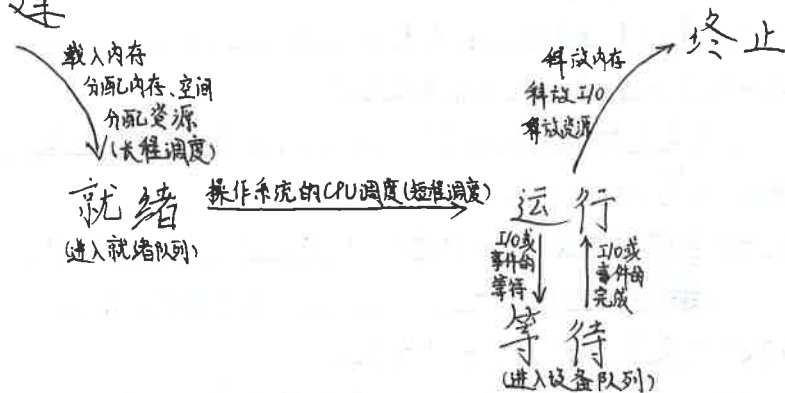 载入内存
分配内存、空间
分配资源
(长程调度)
就绪
(进入就绪队列)
操作系统的CPU调度(短程调度)
运行
释放内存
释放I/O
释放资源
终止
I/O或
事件的
等待
I/O或
事件的
完成
等待
(进入设备队列)